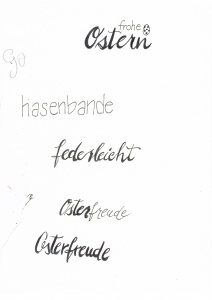 frohe
Ostern
go
hasenbande
federleicht
Osterfreude
Osterfreude